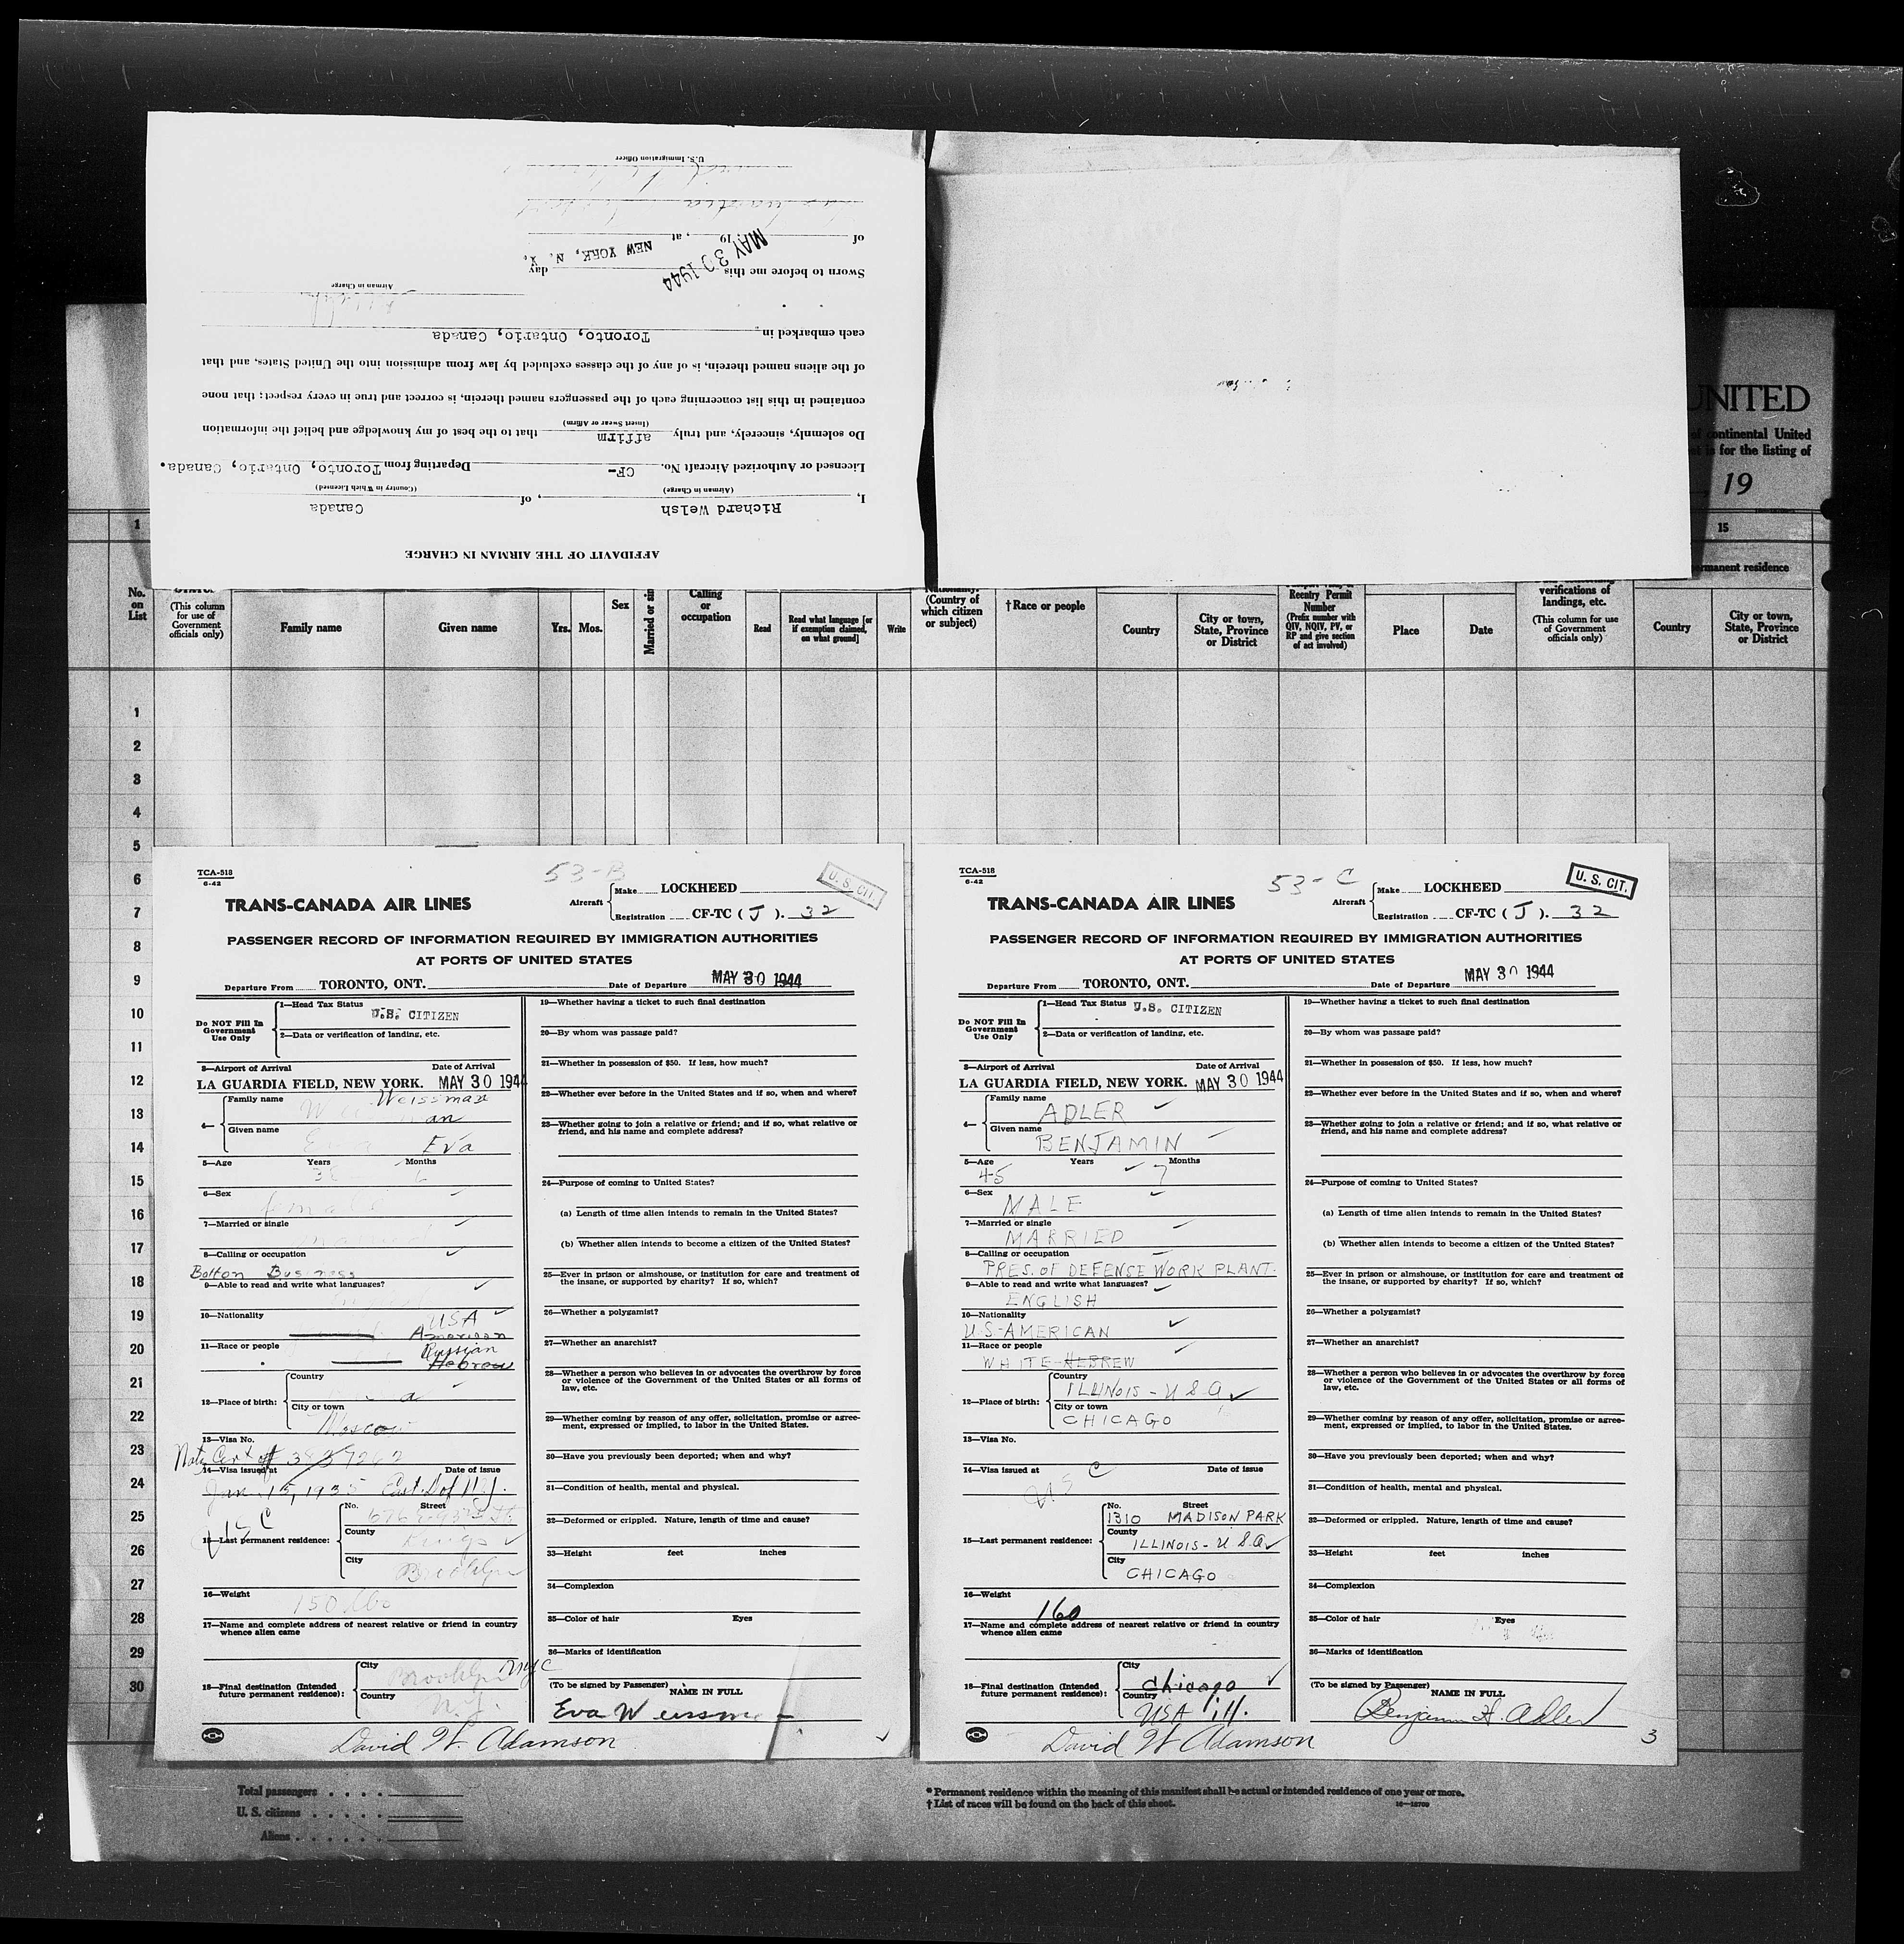 AFFIDAVIT OF THE AIRMAN IN CHARGE
Richard Welsh Canada
I, , of
(Airman in Charge) (Country in Which Licensed)
Licensed or Authorized Aircraft No. CF- Departing from Toronto, Ontario, Canada.
Do solemnly, sincerely, and truly affirm that to the best of my knowledge and belief the information
(Insert Swear or Affirm)
contained in this list concerning each of the passengers named therein, is correct and true in every respect; that none
of the aliens named therein, is of any of the classes excluded by law from admission into the United States, and that
each embarked in Toronto, Ontario, Canada
Airman in Charge
Sworn to before me this day
MAY 30 1944
NEW YORK, N. Y.
of 19 , at
U.S. Immigration Officer
UNITED
of continental United
is for the listing of
, 19
1 15
permanent residence
No. on List
(This column for use of Government officials only)
Family name
Given name
Yrs. Mos.
Sex
Calling or occupation
Read
Read what language [or if exemption claimed, on what ground]
Write
(Country of which citizen or subject)
†Race or people
Country
City or town, State, Province or District
Reentry Permit Number
(Prefix number with QIV, NQIV, PV, or RP and give section of act involved)
Place
Date
verifications of landings, etc.
(This column for use of Government officials only)
Country
City or town, State, Province or District
1
2
3
4
5
6
7
8
9
10
11
12
13
14
15
16
17
18
19
20
21
22
23
24
25
26
27
28
29
30
TCA-518
6-42
53-B
U. S. CIT.
TRANS-CANADA AIR LINES
Aircraft
Make LOCKHEED
Registration CF-TC ( J ). 32
PASSENGER RECORD OF INFORMATION REQUIRED BY IMMIGRATION AUTHORITIES
AT PORTS OF UNITED STATES
Departure From TORONTO, ONT. Date of Departure MAY 30 1944
Do NOT Fill In Government Use Only
1—Head Tax Status
U.S. CITIZEN
2—Data or verification of landing, etc.
3—Airport of Arrival Date of Arrival
LA GUARDIA FIELD, NEW YORK. MAY 30 1944
4—
Family name Weissman
an
Given name
Eva
5—Age Years Months
6—Sex
female
7—Married or single
married
8—Calling or occupation
Botton Business
9—Able to read and write what languages?
10—Nationality USA
American
11—Race or people Russian
Hebrew
12—Place of birth:
Country
a
City or town
Moscow
13—Visa No.
14—Visa issued at Date of issue
Jan. 15, 1935 East. D of N.Y.
15—Last permanent residence:
No. Street
County
Kings
City
Brooklyn
16—Weight
150 lbs
17—Name and complete address of nearest relative or friend in country
whence alien came
18—Final destination (Intended future permanent residence):
City
Brooklyn NYC
Country
N.Y.
19—Whether having a ticket to such final destination
20—By whom was passage paid?
21—Whether in possession of $50. If less, how much?
22—Whether ever before in the United States and if so, when and where?
23—Whether going to join a relative or friend; and if so, what relative or
friend, and his name and complete address?
24—Purpose of coming to United States?
(a) Length of time alien intends to remain in the United States?
(b) Whether alien intends to become a citizen of the United States?
25—Ever in prison or almshouse, or institution for care and treatment of
the insane, or supported by charity? If so, which?
26—Whether a polygamist?
27—Whether an anarchist?
28—Whether a person who believes in or advocates the overthrow by force
or violence of the Government of the United States or all forms of
law, etc.
29—Whether coming by reason of any offer, solicitation, promise or agree-
ment, expressed or implied, to labor in the United States.
30—Have you previously been deported; when and why?
31—Condition of health, mental and physical.
32—Deformed or crippled. Nature, length of time and cause?
33—Height feet inches
34—Complexion
35—Color of hair Eyes
36—Marks of identification
(To be signed by Passenger) NAME IN FULL
Eva Weissman
David W. Adamson
TCA-518
6-42
53-C
U. S. CIT.
TRANS-CANADA AIR LINES
Aircraft
Make LOCKHEED
Registration CF-TC ( J ). 32
PASSENGER RECORD OF INFORMATION REQUIRED BY IMMIGRATION AUTHORITIES
AT PORTS OF UNITED STATES
Departure From TORONTO, ONT. Date of Departure MAY 30 1944
Do NOT Fill In Government Use Only
1—Head Tax Status
U.S. CITIZEN
2—Data or verification of landing, etc.
3—Airport of Arrival Date of Arrival
LA GUARDIA FIELD, NEW YORK. MAY 30 1944
4—
Family name
ADLER
Given name
BENJAMIN
5—Age Years Months
45 7
6—Sex
MALE
7—Married or single
MARRIED
8—Calling or occupation
PRES. OF DEFENSE WORK PLANT.
9—Able to read and write what languages?
ENGLISH
10—Nationality
U.S-AMERICAN
11—Race or people
WHITE-HEBREW
12—Place of birth:
Country
ILLINOIS - U S A
City or town
CHICAGO
13—Visa No.
14—Visa issued at Date of issue
U S C
15—Last permanent residence:
No. Street
1310 MADISON PARK
County
ILLINOIS - U S A
City
CHICAGO
16—Weight
160
17—Name and complete address of nearest relative or friend in country
whence alien came
18—Final destination (Intended future permanent residence):
City
Chicago
Country
USA Ill.
19—Whether having a ticket to such final destination
20—By whom was passage paid?
21—Whether in possession of $50. If less, how much?
22—Whether ever before in the United States and if so, when and where?
23—Whether going to join a relative or friend; and if so, what relative or
friend, and his name and complete address?
24—Purpose of coming to United States?
(a) Length of time alien intends to remain in the United States?
(b) Whether alien intends to become a citizen of the United States?
25—Ever in prison or almshouse, or institution for care and treatment of
the insane, or supported by charity? If so, which?
26—Whether a polygamist?
27—Whether an anarchist?
28—Whether a person who believes in or advocates the overthrow by force
or violence of the Government of the United States or all forms of
law, etc.
29—Whether coming by reason of any offer, solicitation, promise or agree-
ment, expressed or implied, to labor in the United States.
30—Have you previously been deported; when and why?
31—Condition of health, mental and physical.
32—Deformed or crippled. Nature, length of time and cause?
33—Height feet inches
34—Complexion
35—Color of hair Eyes
36—Marks of identification
(To be signed by Passenger) NAME IN FULL
Benjamin H. Adler
David W Adamson
3
Total passengers . . . .
U. S. citizens . . . . .
Aliens . . . . . .
* Permanent residence within the meaning of this manifest shall be actual or intended residence of one year or more.
† List of races will be found on the back of this sheet.